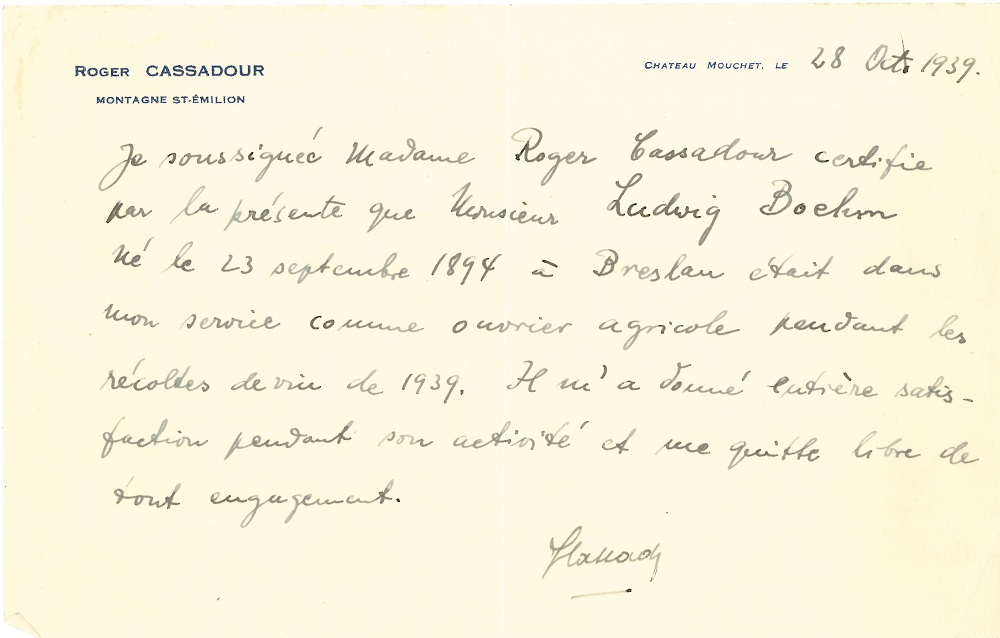 ROGER CASSADOUR
MONTAGNE ST-ÉMILION
CHATEAU MOUCHET, LE 28 Oct. 1939.
Je soussignée Madame Roger Cassadour certifie
par la présente que Monsieur Ludwig Boehm
né le 23 septembre 1894 à Breslau était dans
mon service comme ouvrier agricole pendant les
récoltes de vin de 1939. Il m'a donné entière satis-
faction pendant son activité et me quitte libre de
tout engagement.